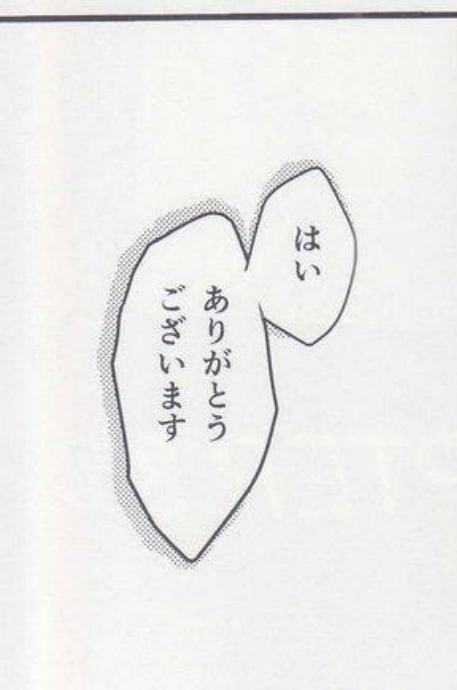 はい
ありがとう
ございます